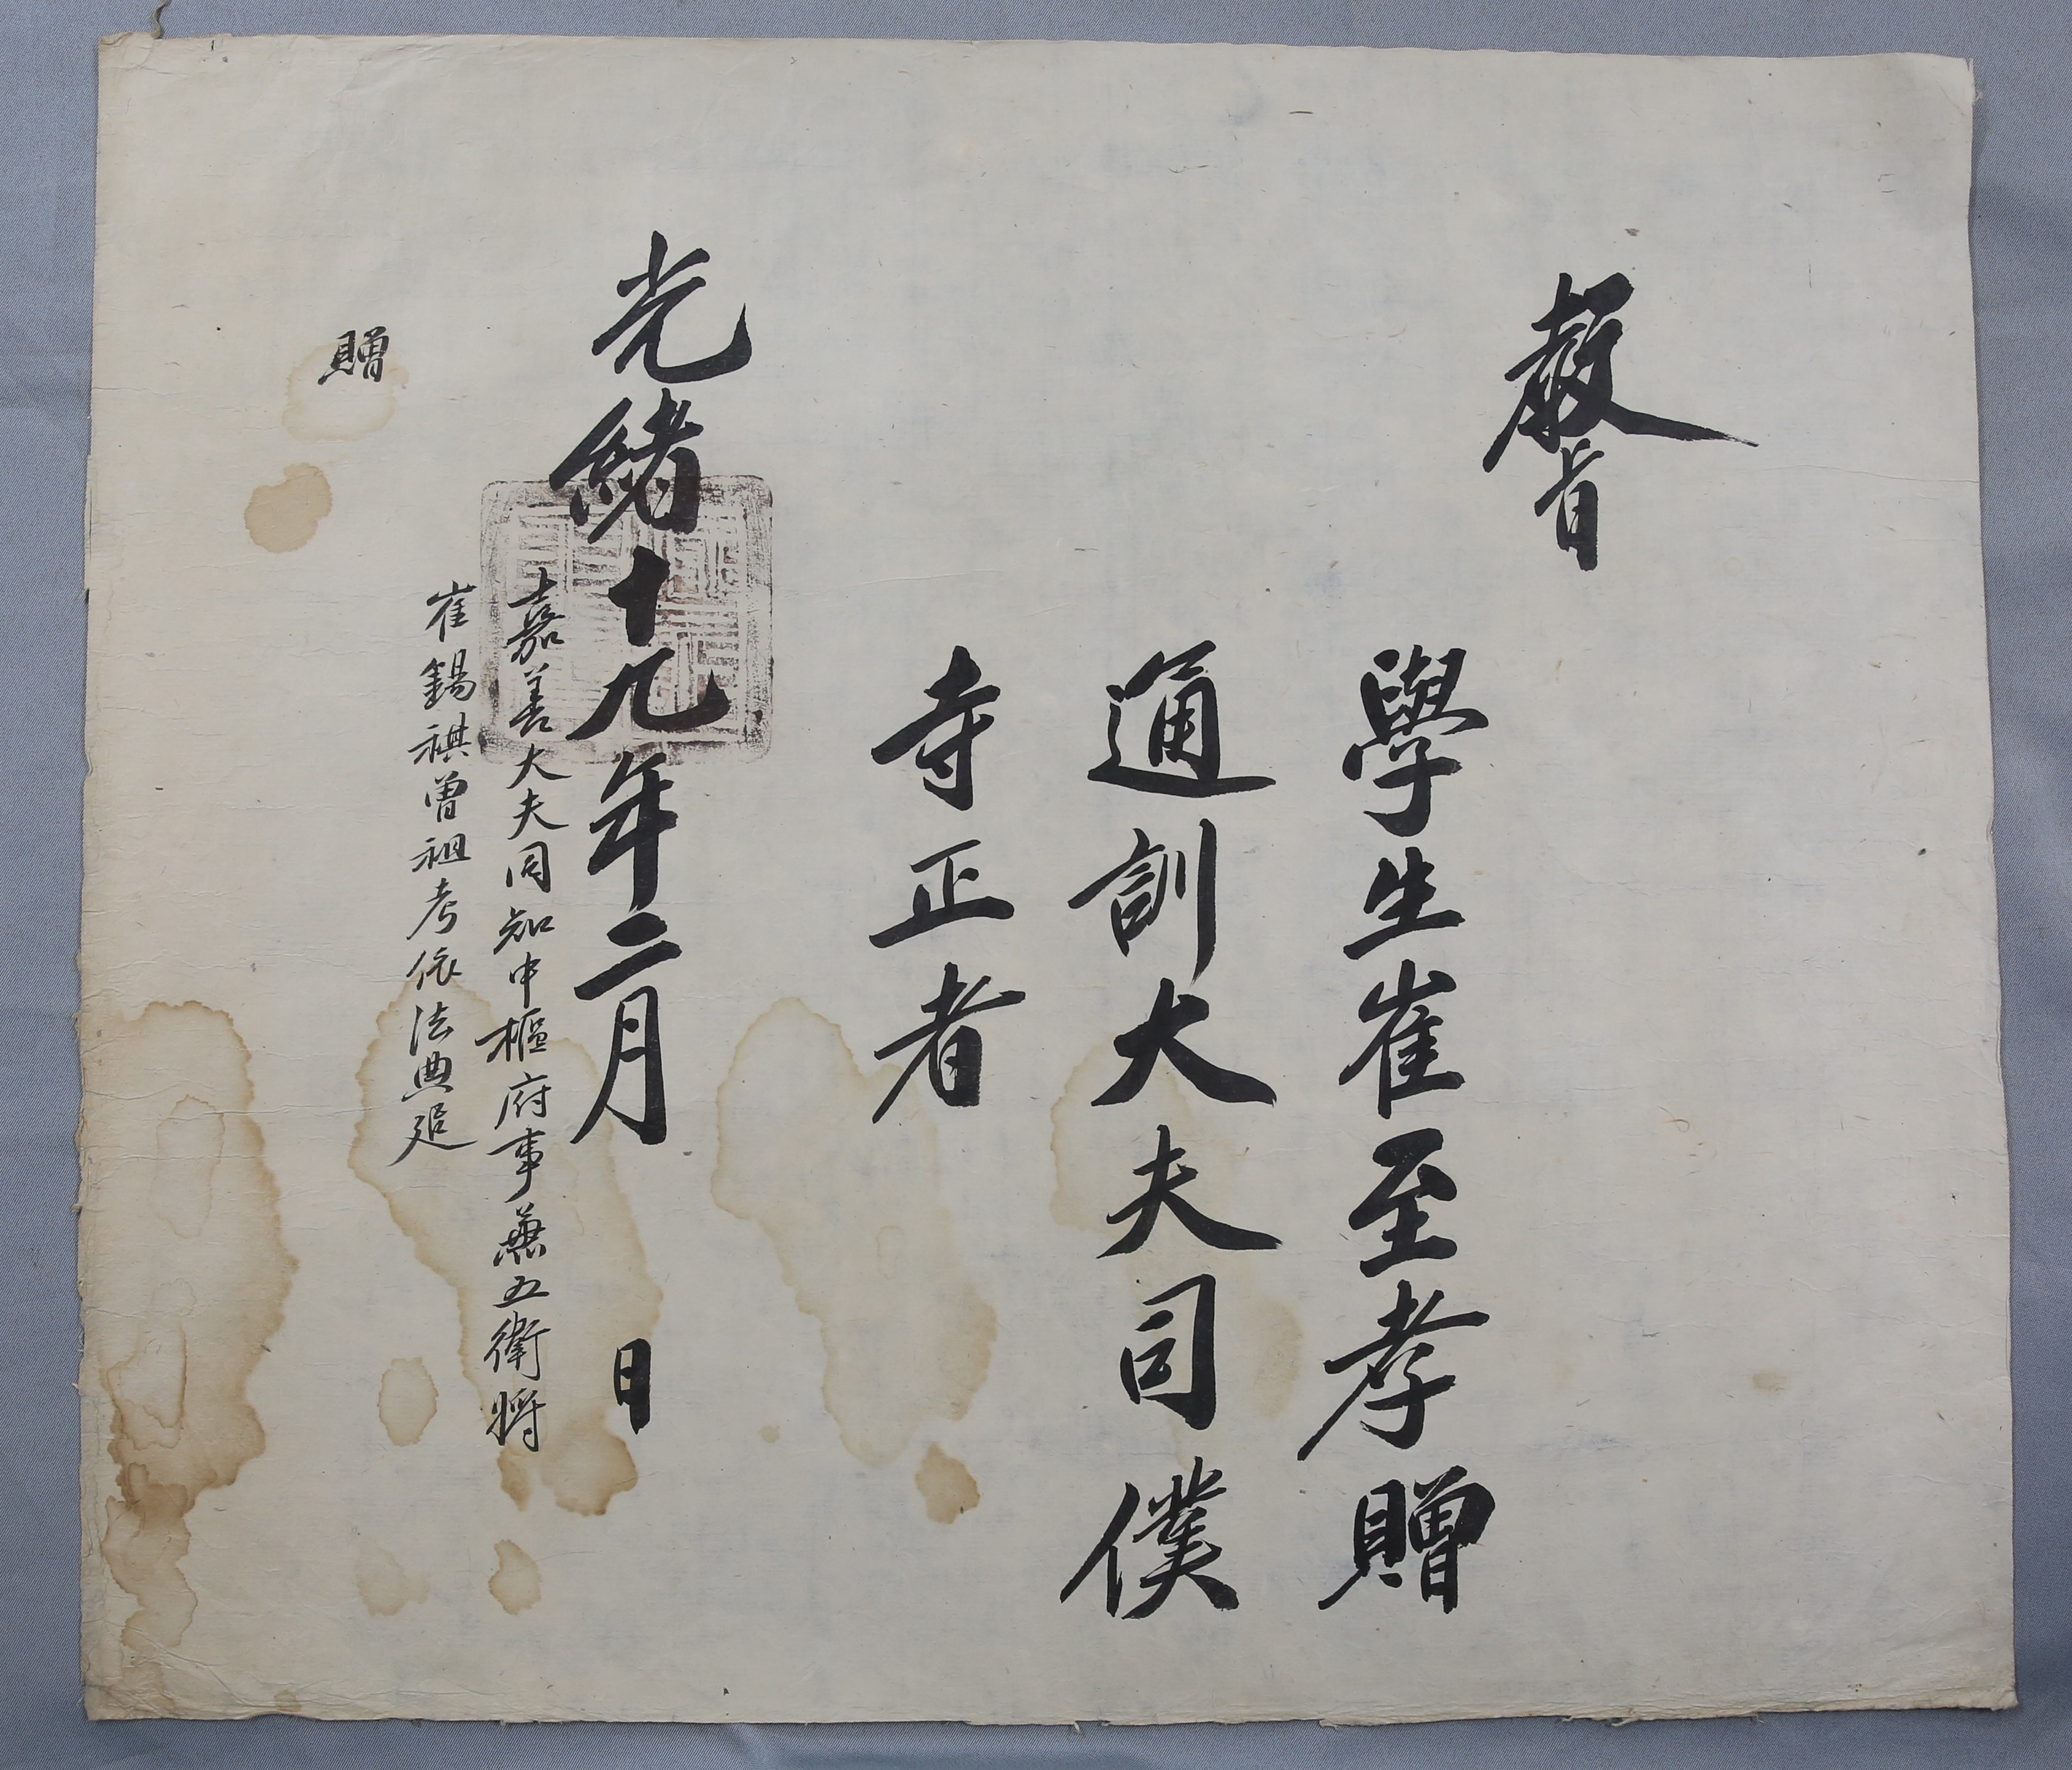 敎旨
學生崔至孝贈
通訓大夫司僕
寺正者
光緖十九年二月 日
嘉善大夫同知中樞府事兼五衛將
崔錫祺曾祖考依法典追
贈